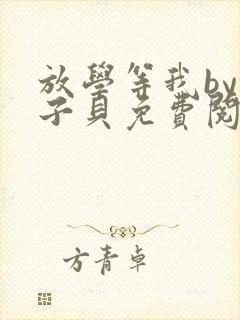 放學等我by
子貝免費閱
方青卓